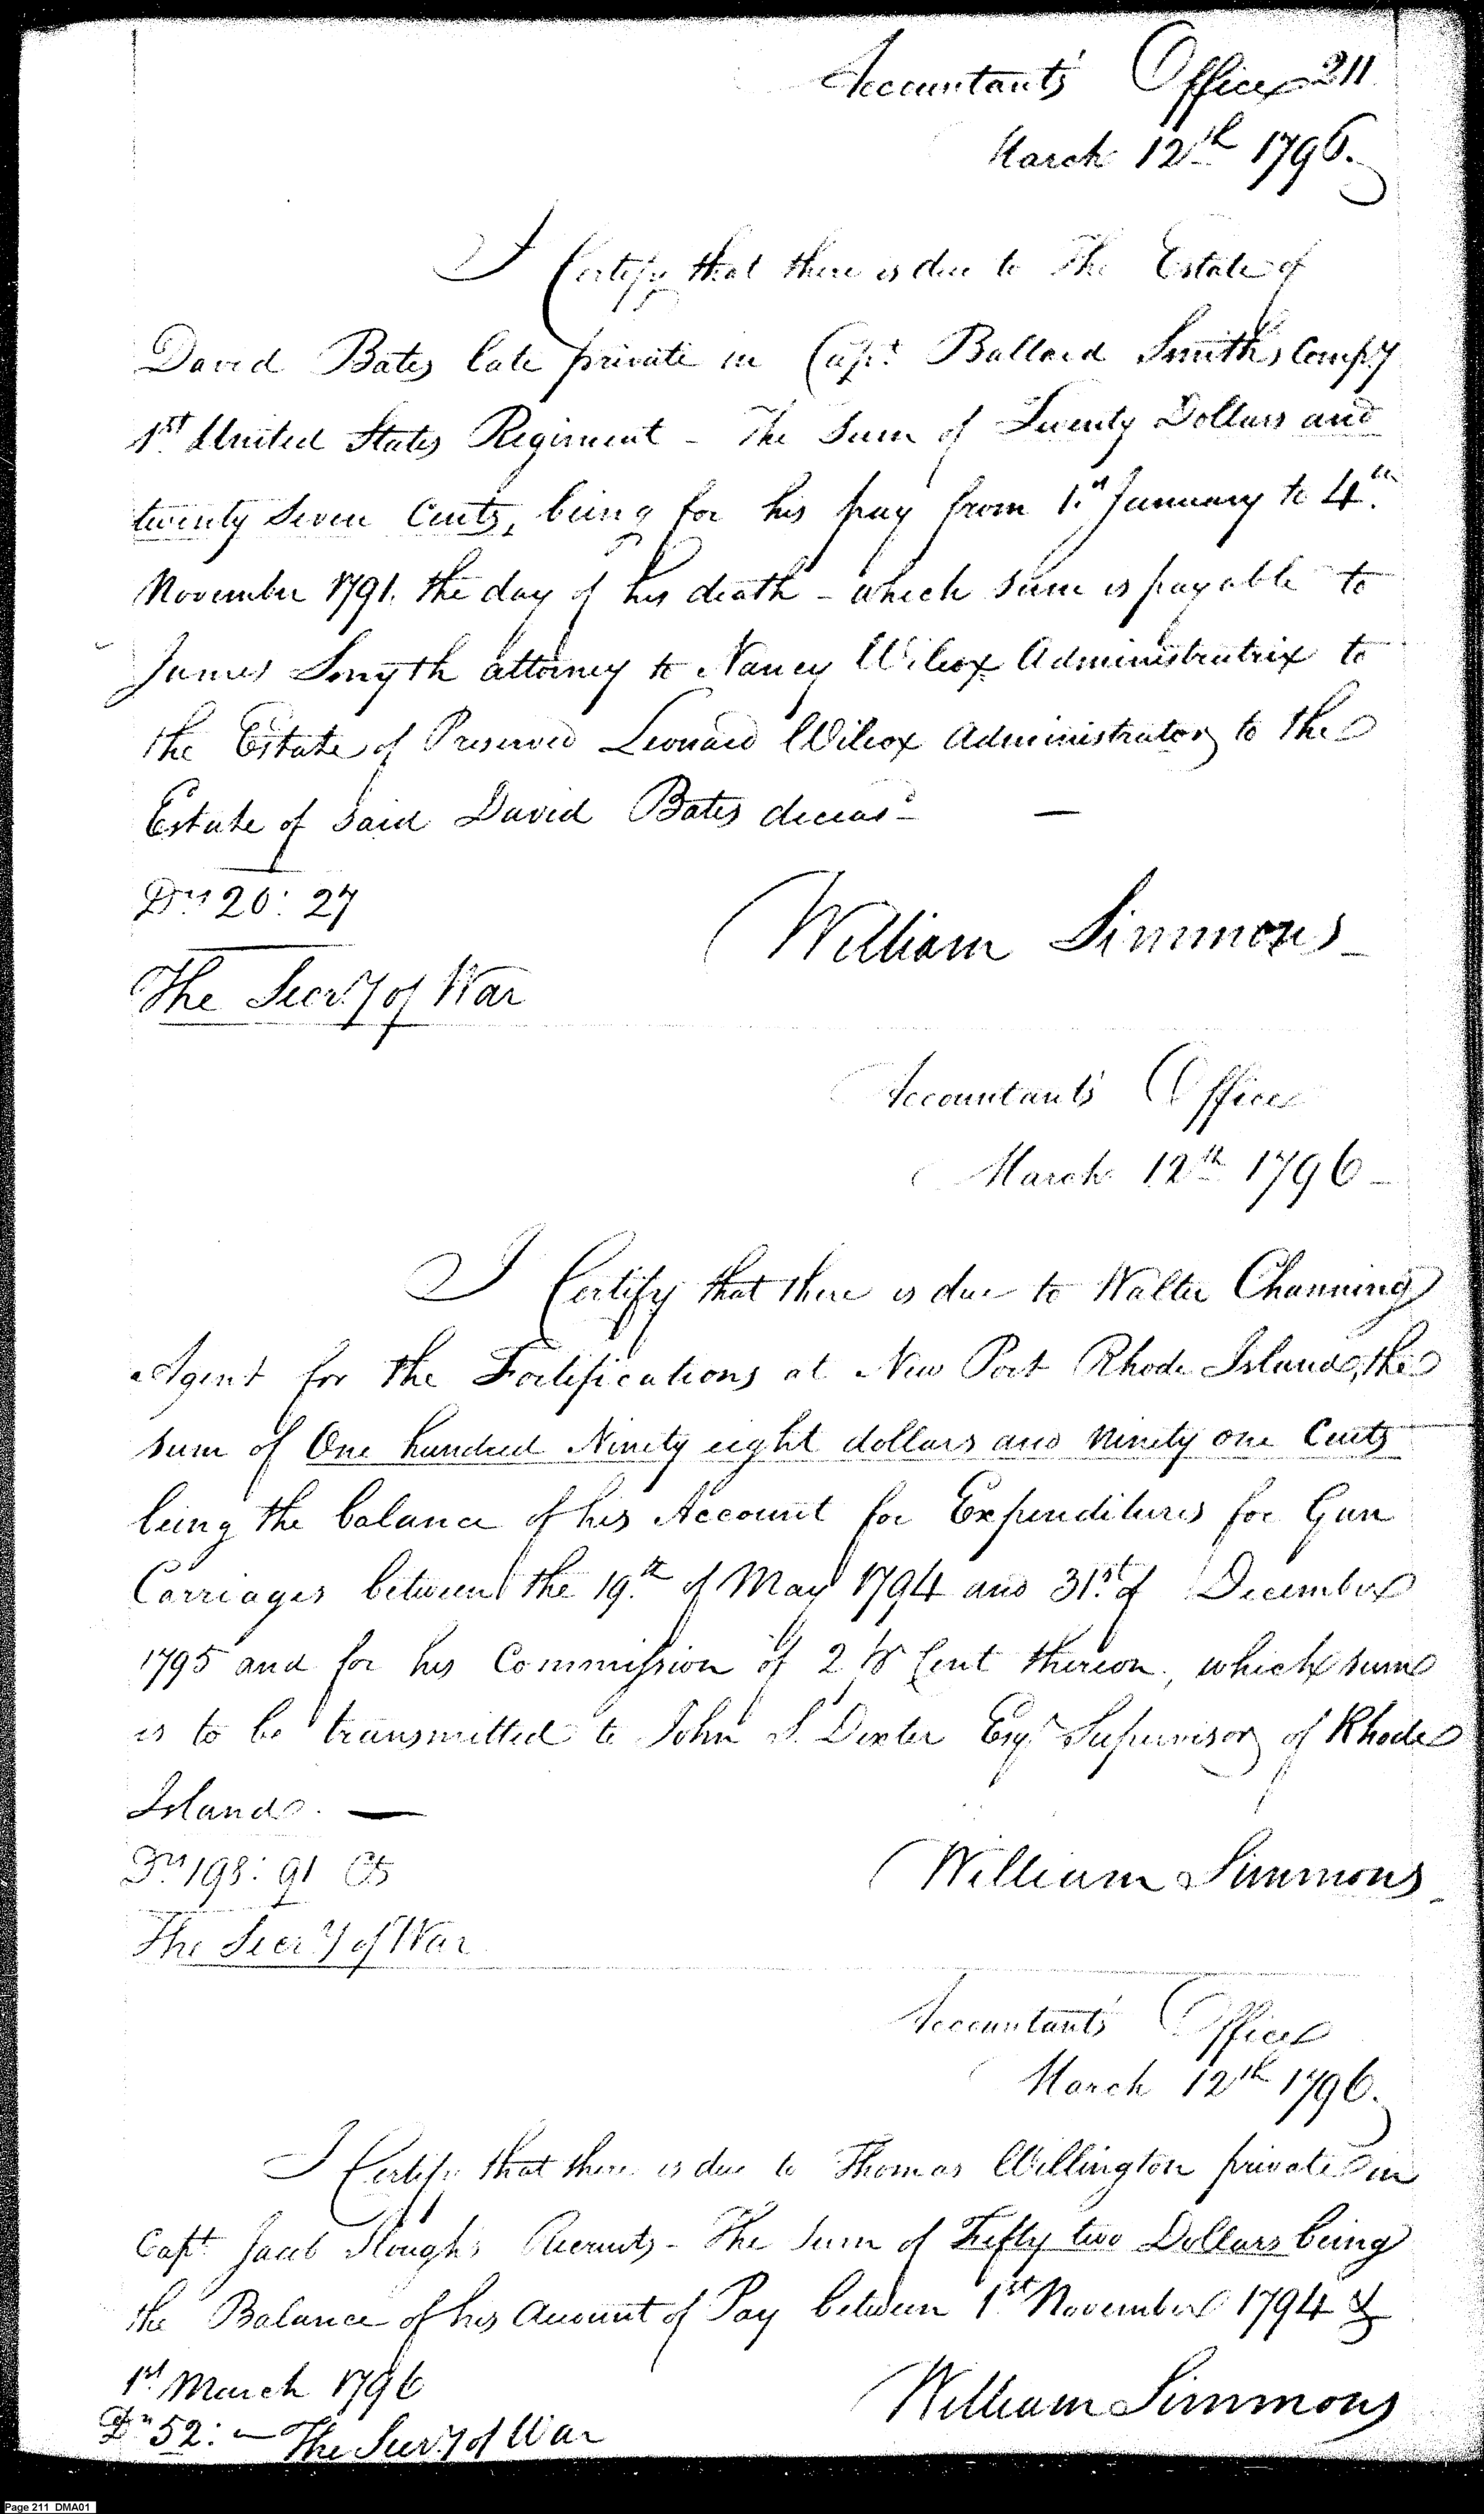 Accountant's Office 211
March 12th 1796.
I Certify that there is due to The Estate of
David Bates late private in Capt Ballard Smiths Compy
1st United States Regiment - The Sum of Twenty Dollars and
twenty Seven Cents, being for his pay from 1st January to 4th
November 1791. the day of his death - which sum is payable to
James Smyth attorney to Nancy Wilcox Administratrix to
the Estate of Preserved Leonard Wilcox Administrator to the
Estate of said David Bates deceasd —
Drs 20: 27
William Simmons
The Secry of War
Accountant's Office
March 12th 1796
I Certify that there is due to Walter Channing
Agent for the Fortifications at New Port Rhode Island, the
sum of One hundred Ninety eight dollars and ninety one Cents
being the balance of his Account for Expenditures for Gun
Carriages between the 19th of May 1794 and 31st of December
1795 and for his Commission of 2 ⅌ Cent thereon, which sum
is to be transmitted to John S. Dexter Esqr Supervisor of Rhode
Island. —
Drs 198: 91 Cts
William Simmons
The Secry of War
Accountant's Office
March 12th 1796.
I Certify that there is due to Thomas Willington private in
Capt Jacob Slough's Recruits - The Sum of Fifty two Dollars being
the Balance of his Amount of Pay between 1st November 1794 &
1st March 1796
William Simmons
Drs 52: — The Secry of War
Page 211 DMA01